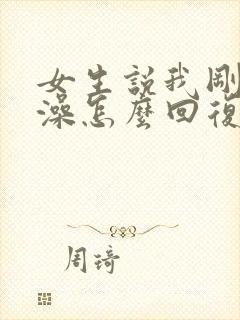 女生説我剛
澡怎麼回復
周琦